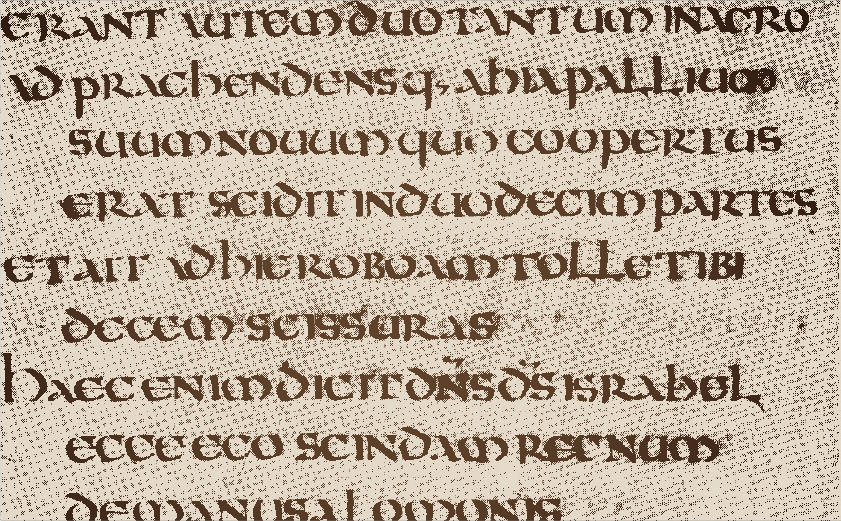 ERANT AUTEM DUO TANTUM IN AGRO
ADPRAEHENDENSQ; AHIA PALLIUM
SUUM NOUUM QUO COOPERTUS
ERAT SCIDIT IN DUODECIM PARTES
ET AIT AD HIEROBOAM TOLLE TIBI
DECEM SCISSURAS
HAEC ENIM DICIT DN̄S D̄S ISRAHEL
ECCE EGO SCINDAM REGNUM
DE MANU SALOMONIS